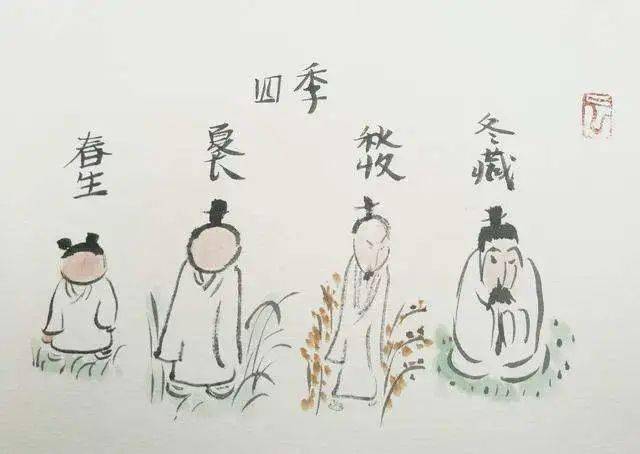 四季
春生
夏长
秋收
冬藏